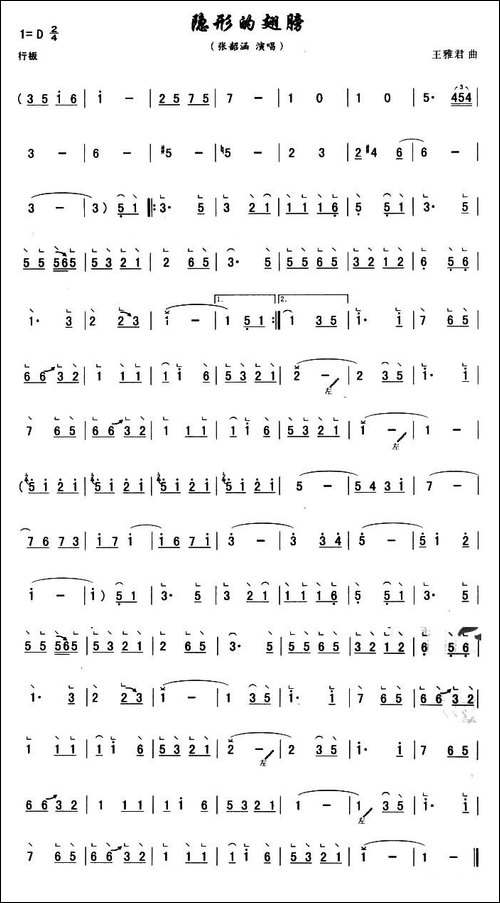 隐形的翅膀
1=D 2/4
(张韶涵 演唱)
行板
王雅君 曲
( 3 5 i 6 | i - | 2 5 7 5 | 7 - | 1 0 | 1 0 | 5· 454
3 - | 6 - | #5 - | #5 - | 2 3 | 2 #4 6 | 6 -
3 - | 3 ) 5 1 |: 3· 5 | 3 2 1 | 1 1 1 6 | 5 5 1 | 3· 5
5 5 565 | 5 3 2 1 | 2 6 5 | 3· 5 | 5 5 6 5 | 3 2 1 2 | 6 5 6
1· 3 | 2 2 3 | 1 - | 1. 1 5 1 :| 2. 1 3 5 | i· i | 7 6 5
6 6 3 2 | 1 1 1 | i i 6 | 5 3 2 1 | 2 - 左 | 2 3 5 | i· i
7 6 5 | 6 6 3 2 | 1 1 1 | i i 6 | 5 3 2 1 | 1 - 左 | 1 -
( 5 i 2 i | 5 i 2 i | 5 i 2 i | 5 i 2 i | 5 - | 5 4 3 i | 7 -
7 6 7 3 | i 7 i | i 7 6 5 | 3 - | 3 3 4 | 5 - | 5 i 2
i - | i ) 5 1 | 3· 5 | 3 2 1 | 1 1 1 6 | 5 5 1 | 3· 5
5 5 565 | 5 3 2 1 | 2 6 5 | 3· 5 | 5 5 6 5 | 3 2 1 2 | 6 5 6
1· 3 | 2 2 3 | 1 - | 1 3 5 | i· i | 7 6 5 | 6 6 3 2
1 1 1 | i i 6 | 5 3 2 1 | 2 - 左 | 2 3 5 | i· i | 7 6 5
6 6 3 2 | 1 1 1 | i i 6 | 5 3 2 1 | 1 - | 1 左 3 5 | i· i
7 6 5 | 6 6 3 2 | 1 1 1 | i i 6 | 5 3 2 1 | 1 - 左 | 1 - ‖